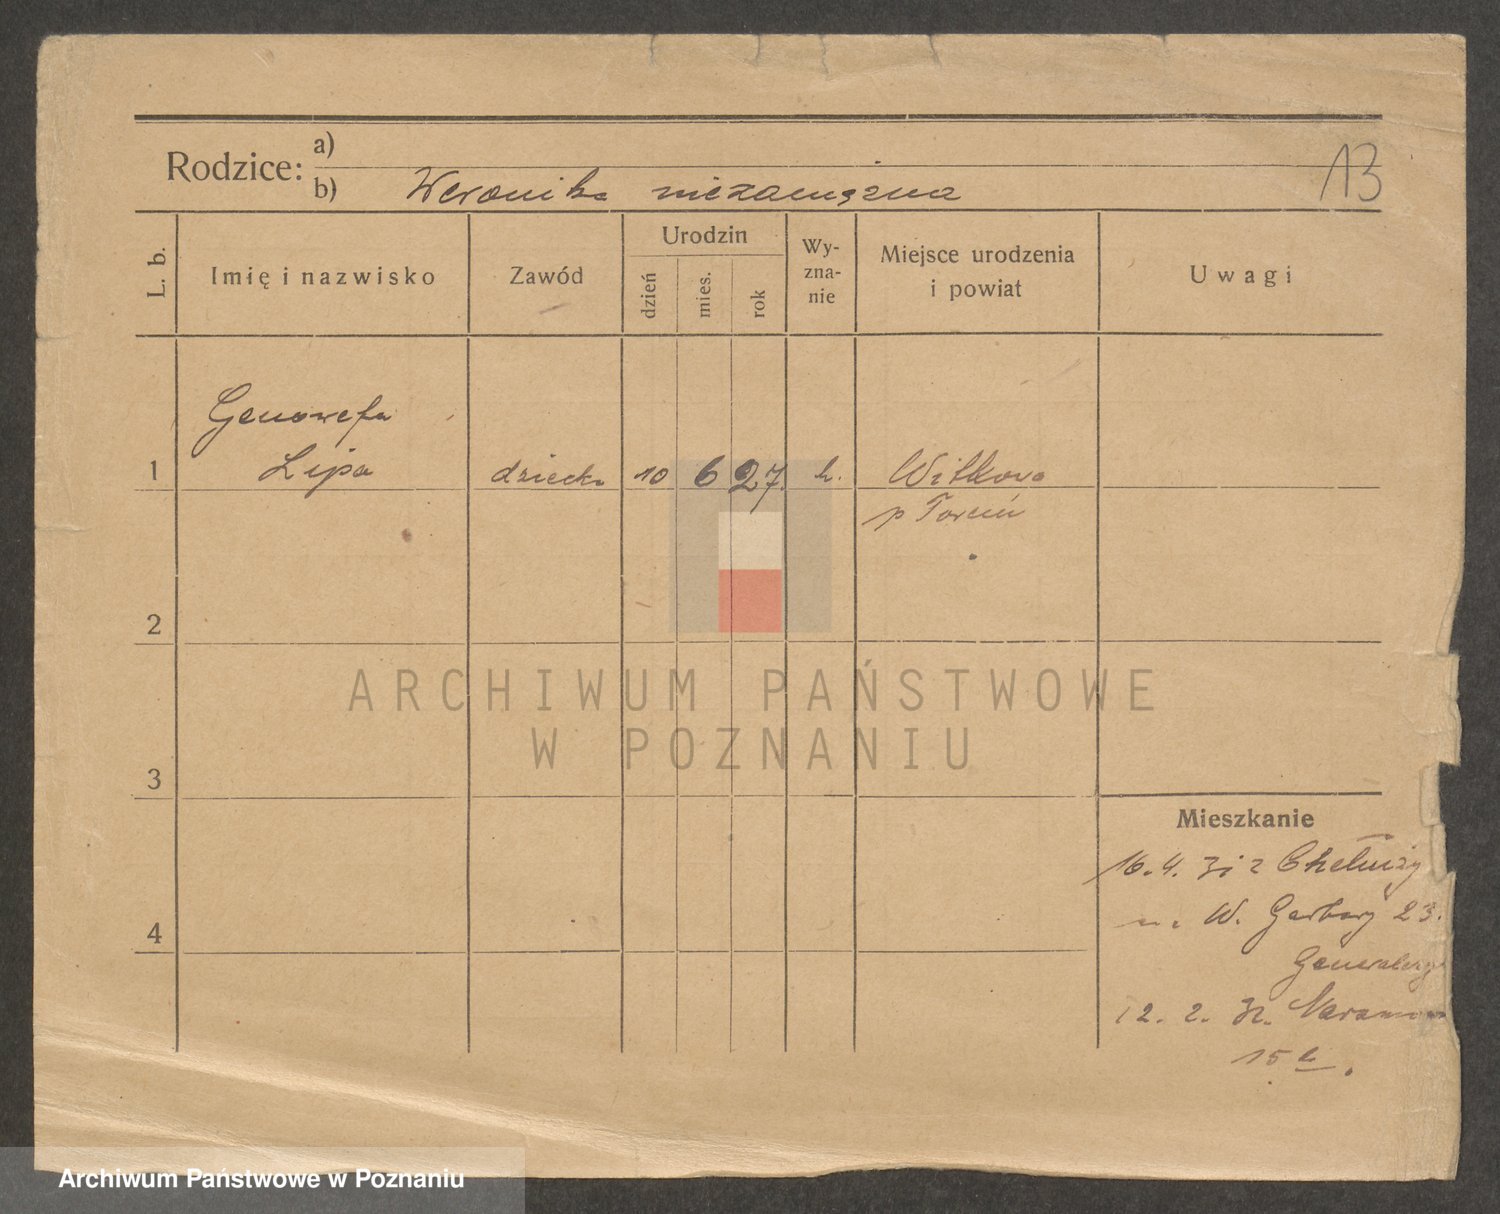 13
Rodzice: a)
b) Weronika niezamężna
L. b.
Imię i nazwisko
Zawód
Urodzin
dzień
mies.
rok
Wy-
zna-
nie
Miejsce urodzenia
i powiat
Uwagi
Genowefa
1 Lipa dziecko 10 6 27. k. Witkowo
p Toruń
2
3
4
Mieszkanie
16.4. 31 z Chełmży
W. Garbary 23.
12. 2. 32.
15
ARCHIWUM PAŃSTWOWE
W POZNANIU
Archiwum Państwowe w Poznaniu